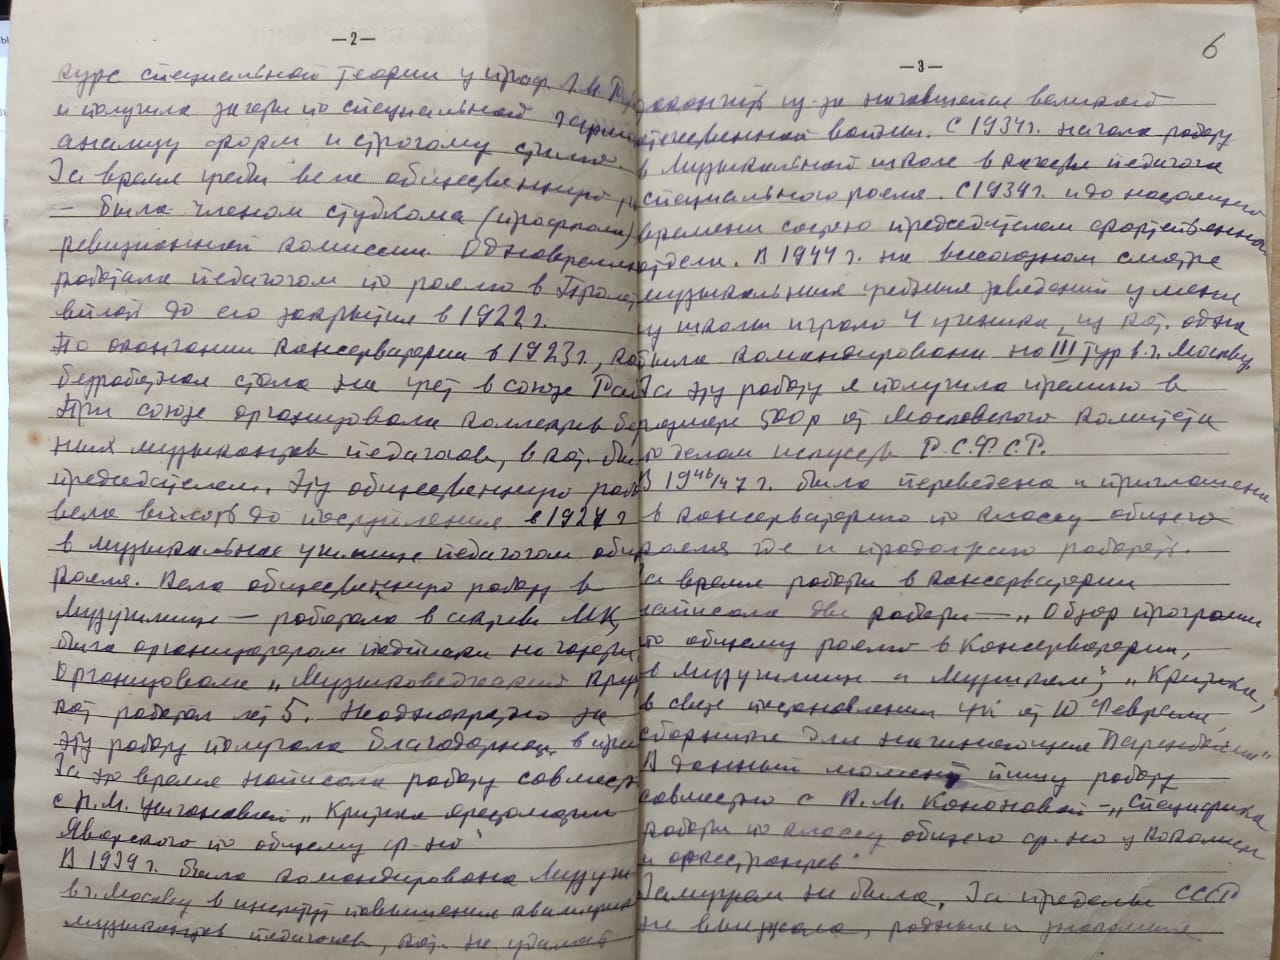 — 2 —
курс специальной теории у проф. Л. М.
и получила зачеты по специальной
анализу форм и строгому стилю.
За время учебы вела общественную
— была членом студкома (профкома)
ревизионной комиссии. Одновременно
работала педагогом по роялю в
вплоть до его закрытия в 1922 г.
По окончании консерватории в 1923 г., как
безработная стала на учет в союзе Раб
При союзе организовали коллектив без
ных музыкантов педагогов, в кот. была
председателем. Эту общественную раб
вела вплоть до поступления в 1927 г
в музыкальное училище педагогом общ
рояля. Вела общественную работу в
Музучилище — работала в активе МК,
была организатором подписки на газеты
Организовала „Музыковедческий круж
кот. работал лет 5. Неоднократно за
эту работу получала благодарность в
За это время написала работу совместно
с П. М. „Критика хрестоматии
Яворского по общему ф-но"
В 1939 г. была командирована Музуч
в г. Москву в институт повышения квалифик
музыкантов педагогов, кот. не удалось
6
— 3 —
окончить из-за начавшейся великой
отечественной войны. С 1934 г. начала работу
в музыкальной школе в качестве педагога
специального рояля. С 1934 г. и до настоящего
времени состою председателем фортепьянного
отдела. В 1944 г. на всесоюзном смотре
музыкальных учебных заведений у меня
из школы играло 4 ученика, из кот. одна
была командирована на III тур в г. Москву.
За эту работу я получила премию в
размере 500 р от Московского комитета
по делам искусств Р.С.Ф.С.Р.
В 1946/47 г. была переведена и приглашена
в консерваторию по классу общего
рояля где и продолжаю работать.
За время работы в консерватории
написала две работы — „Обзор программ
по общему роялю в Консерватории,
в Музучилище и Музшколе", „Критика,
в свете постановления ЦК от 10 Февраля,
сборника для начинающих
В данный момент пишу работу
совместно с А. М. Кононовой — „Специфика
работы по классу общего ф-но у вокалистов
и оркестрантов".
Замужем не была. За пределы СССР
не выезжала, родных и знакомых